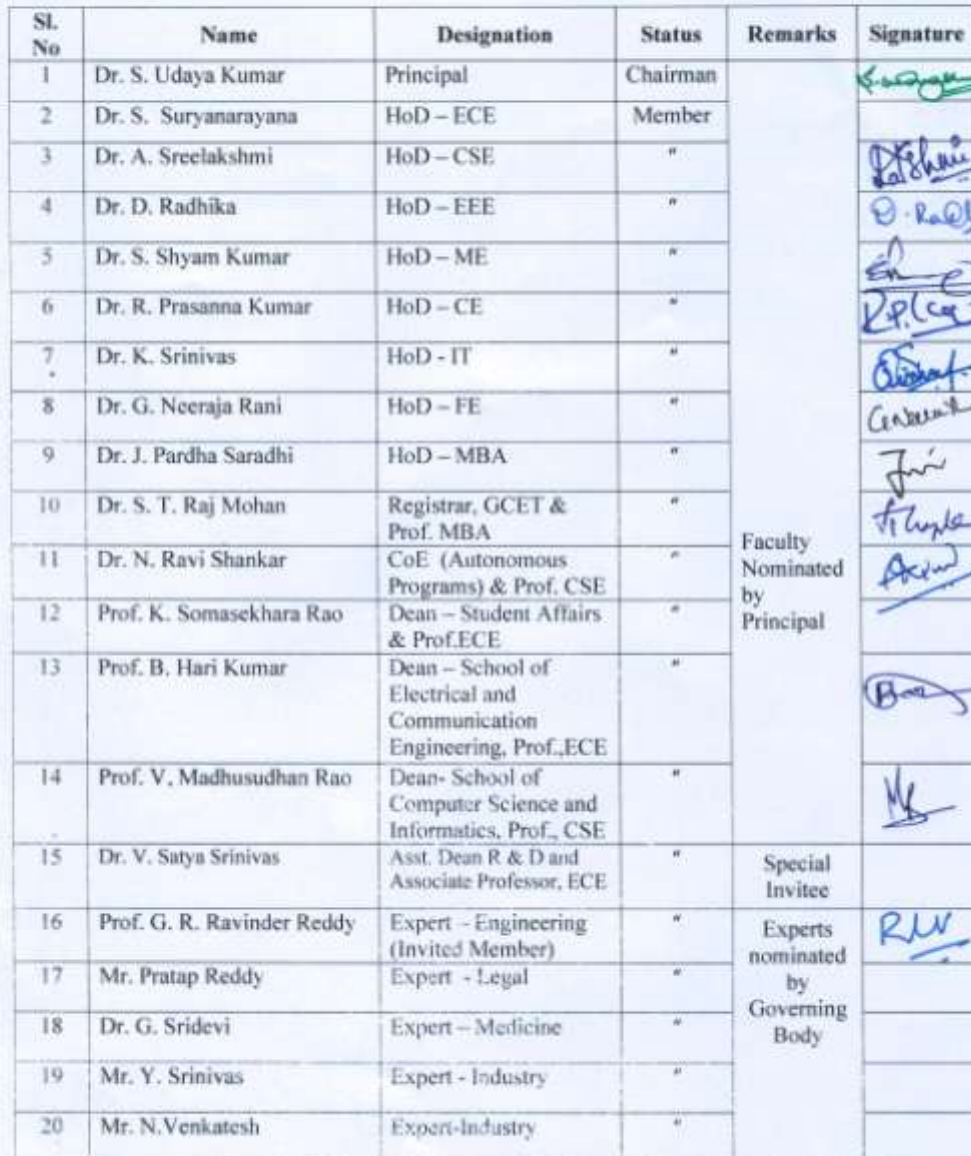 Sl. No Name Designation Status Remarks Signature
1 Dr. S. Udaya Kumar Principal Chairman
2 Dr. S. Suryanarayana HoD – ECE Member
3 Dr. A. Sreelakshmi HoD – CSE "
4 Dr. D. Radhika HoD – EEE "
5 Dr. S. Shyam Kumar HoD – ME "
6 Dr. R. Prasanna Kumar HoD – CE "
7 Dr. K. Srinivas HoD - IT "
8 Dr. G. Neeraja Rani HoD – FE "
9 Dr. J. Pardha Saradhi HoD – MBA "
10 Dr. S. T. Raj Mohan Registrar, GCET &
Prof. MBA "
11 Dr. N. Ravi Shankar CoE (Autonomous
Programs) & Prof. CSE "
12 Prof. K. Somasekhara Rao Dean – Student Affairs
& Prof.ECE "
13 Prof. B. Hari Kumar Dean – School of
Electrical and
Communication
Engineering, Prof.,ECE "
14 Prof. V. Madhusudhan Rao Dean- School of
Computer Science and
Informatics, Prof., CSE "
Faculty
Nominated
by
Principal
15 Dr. V. Satya Srinivas Asst. Dean R & D and
Associate Professor, ECE "
Special
Invitee
16 Prof. G. R. Ravinder Reddy Expert – Engineering
(Invited Member) "
17 Mr. Pratap Reddy Expert - Legal "
18 Dr. G. Sridevi Expert – Medicine "
19 Mr. Y. Srinivas Expert - Industry "
20 Mr. N.Venkatesh Expert-Industry "
Experts
nominated
by
Governing
Body